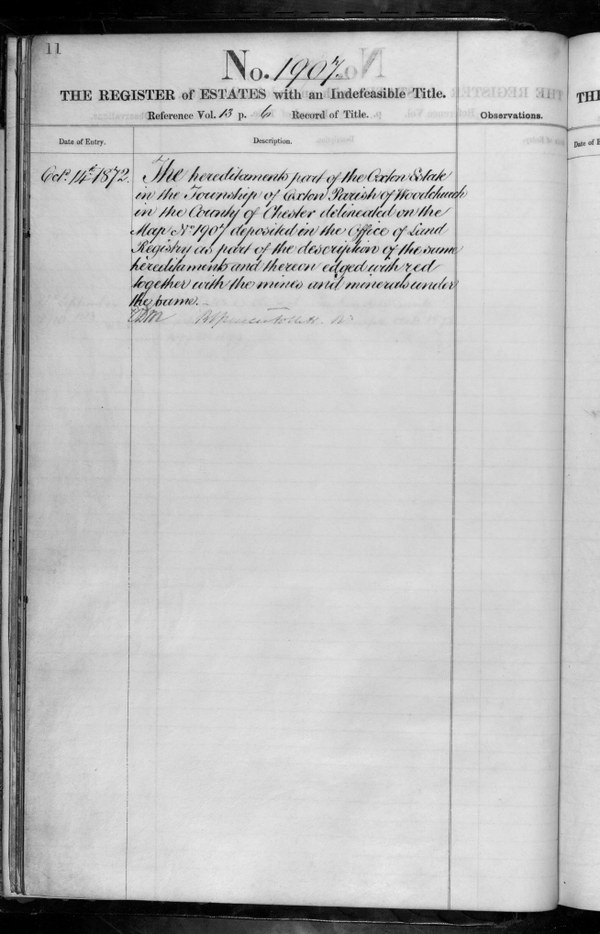 11
No. 1907.
THE REGISTER of ESTATES with an Indefeasible Title.
Reference Vol. 13 p. 6 Record of Title.
Observations.
Date of Entry.
Description.
Octr. 14th 1872.
The hereditaments part of the Oxton Estate
in the Township of Oxton Parish of Woodchurch
in the County of Chester delineated on the
Map No. 1907 deposited in the Office of Land
Registry as part of the description of the same
hereditaments and thereon edged with red
together with the mines and minerals under
the same.
TH
Date of E